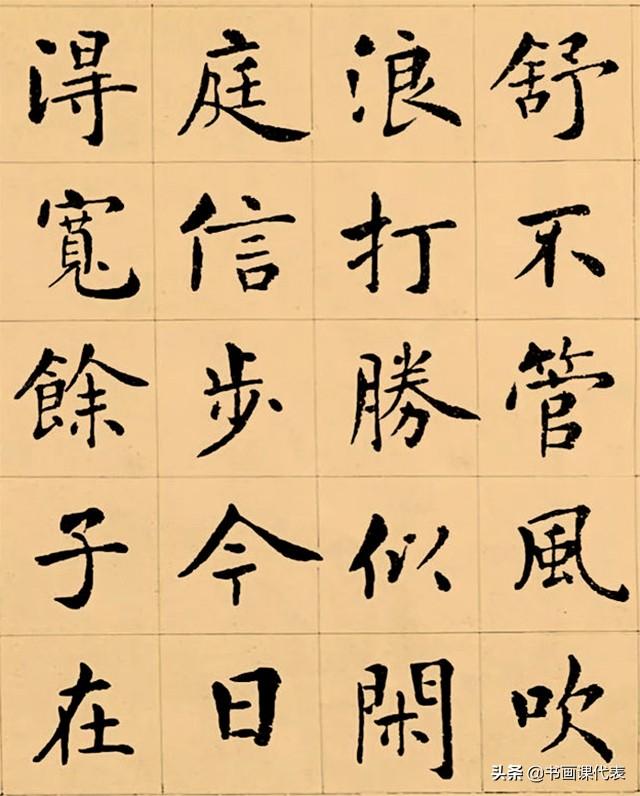 舒不管風吹
浪打勝似閑
庭信步今日
得寬餘子在
头条 @书画课代表